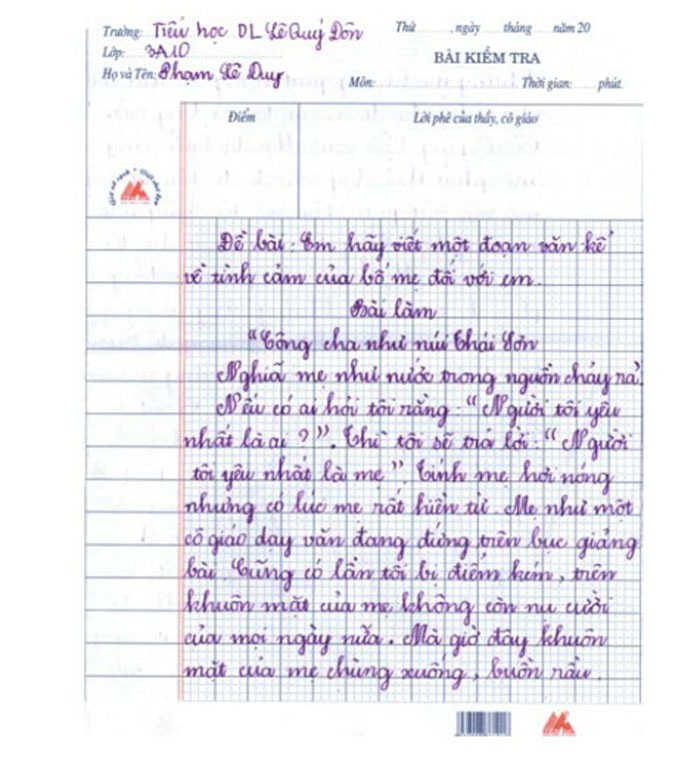 Trường: Tiểu học DL Lê Quý Đôn
Thứ ........, ngày ...... tháng ...... năm 20
Lớp: 3A10
BÀI KIỂM TRA
Họ và Tên: Phạm Lê Duy
Môn: Thời gian: phút.
Điểm
Lời phê của thầy, cô giáo
Đề bài: Em hãy viết một đoạn văn kể
về tình cảm của bố mẹ đối với em.
Bài làm
"Công cha như núi Thái Sơn
Nghĩa mẹ như nước trong nguồn chảy ra"
Nếu có ai hỏi tôi rằng: "Người tôi yêu
nhất là ai?". Thì tôi sẽ trả lời: "Người
tôi yêu nhất là mẹ". Tính mẹ hơi nóng
nhưng có lúc mẹ rất hiền từ. Mẹ như một
cô giáo dạy văn đang đứng trên bục giảng
bài. Cũng có lần tôi bị điểm kém, trên
khuôn mặt của mẹ không còn nụ cười
của mọi ngày nữa. Mà giờ đây khuôn
mặt của mẹ chùng xuống, buồn rầu.